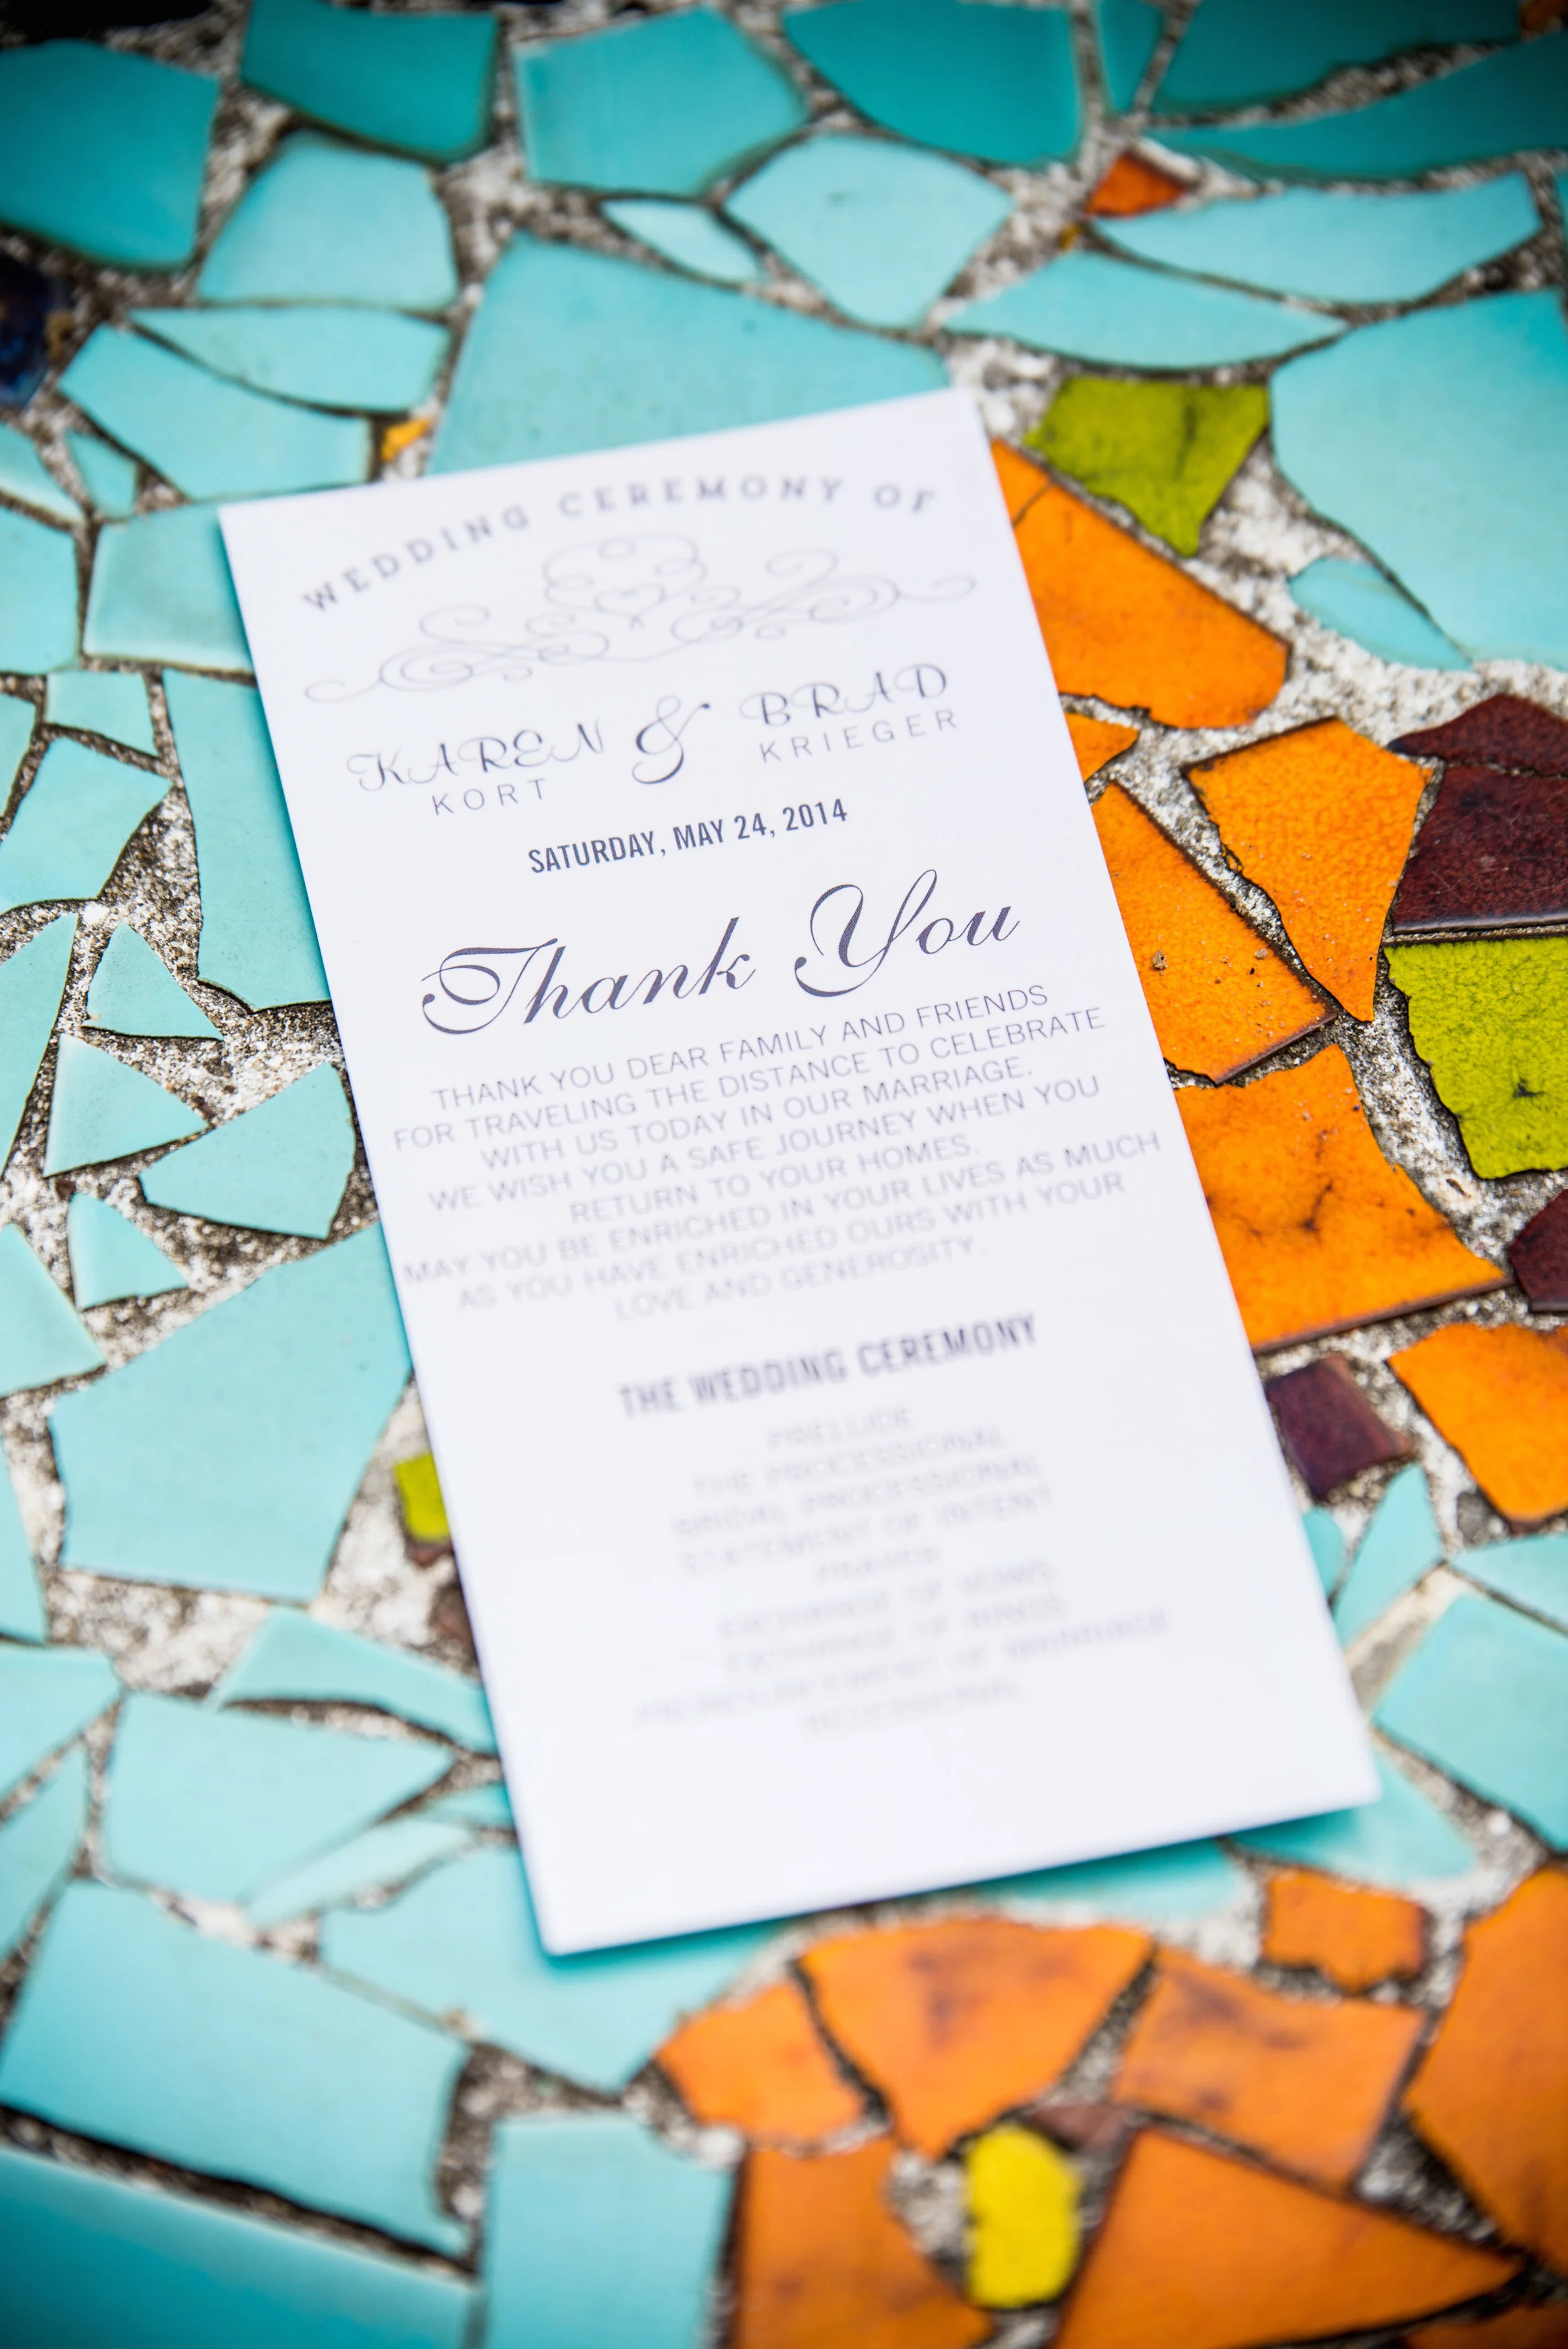 WEDDING CEREMONY OF
KAREN & BRAD
KORT KRIEGER
SATURDAY, MAY 24, 2014
Thank You
THANK YOU DEAR FAMILY AND FRIENDS
FOR TRAVELING THE DISTANCE TO CELEBRATE
WITH US TODAY IN OUR MARRIAGE.
WE WISH YOU A SAFE JOURNEY WHEN YOU
RETURN TO YOUR HOMES.
MAY YOU BE ENRICHED IN YOUR LIVES AS MUCH
AS YOU HAVE ENRICHED OURS WITH YOUR
LOVE AND GENEROSITY.
THE WEDDING CEREMONY
PRELUDE
THE PROCESSIONAL
BRIDAL PROCESSIONAL
STATEMENT OF INTENT
PRAYER
EXCHANGE OF VOWS
EXCHANGE OF RINGS
PRONOUNCEMENT OF MARRIAGE
RECESSIONAL